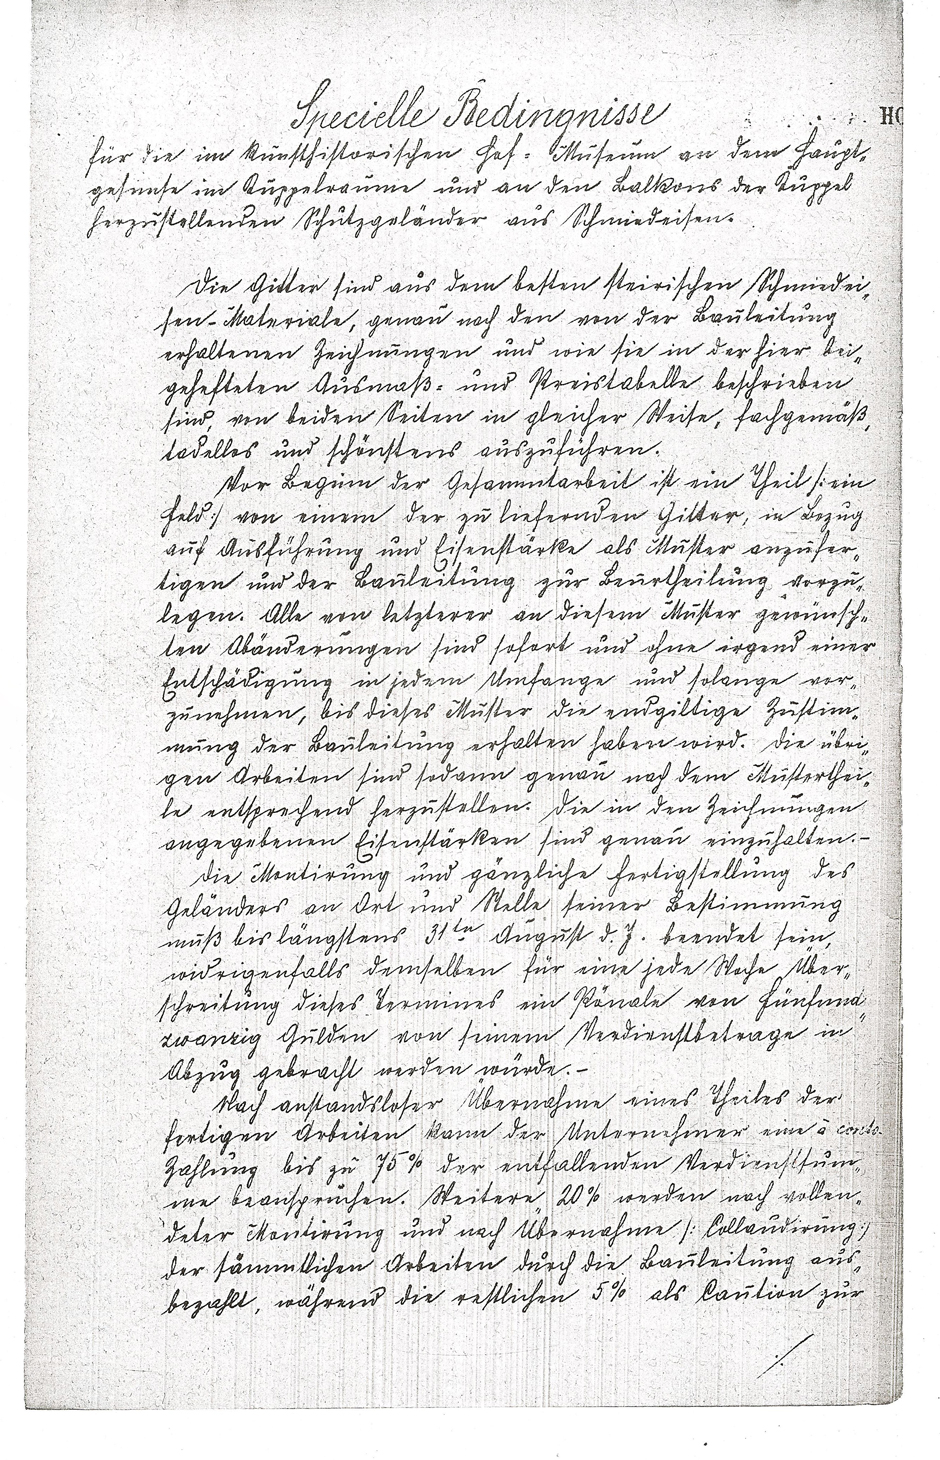 Specielle Bedingnisse
HO
für die im kunsthistorischen Hof- Museum an dem Haupt-
gesimse im Kuppelraume und an den Balkons der Kuppel
herzustellenden Schutzgeländer aus Schmiedeisen.
Die Gitter sind aus dem besten steirischen Schmiedei-
sen-Materiale, genau nach den von der Bauleitung
erhaltenen Zeichnungen und wie sie in der hier bei-
gehefteten Ausmaß- und Preistabelle beschrieben
sind, von beiden Seiten in gleicher Weise, fachgemäß,
tadellos und schönstens auszuführen.
Vor Beginn der Gesammtarbeit ist ein Theil /: ein
Feld :/ von einem der zu liefernden Gitter, in Bezug
auf Ausführung und Eisenstärke als Muster anzufer-
tigen und der Bauleitung zur Beurtheilung vorzu-
legen. Alle von letzterer an diesem Muster gewünsch-
ten Abänderungen sind sofort und ohne irgend einer
Entschädigung in jedem Umfange und solange vor-
zunehmen, bis dieses Muster die endgiltige Zustim-
mung der Bauleitung erhalten haben wird. Die übri-
gen Arbeiten sind sodann genau nach dem Musterthei-
le entsprechend herzustellen. Die in den Zeichnungen
angegebenen Eisenstärken sind genau einzuhalten.–
Die Montirung und gänzliche Fertigstellung des
Geländers an Ort und Stelle seiner Bestimmung
muß bis längstens 31ten August d. J. beendet sein,
widrigenfalls demselben für eine jede Woche Über-
schreitung dieses Termines ein Pönale von Fünfund-
zwanzig Gulden von seinem Verdienstbetrage in
Abzug gebracht werden würde.–
Nach anstandsloser Übernahme eines Theiles der
fertigen Arbeiten kann der Unternehmer eine à conto
Zahlung bis zu 75% der entfallenden Verdienstsum-
me beanspruchen. Weitere 20% werden nach vollen-
deter Montirung und nach Übernahme /: Collaudirung :/
der sämmtlichen Arbeiten durch die Bauleitung aus-
bezahlt, während die restlichen 5% als Caution zur
./.